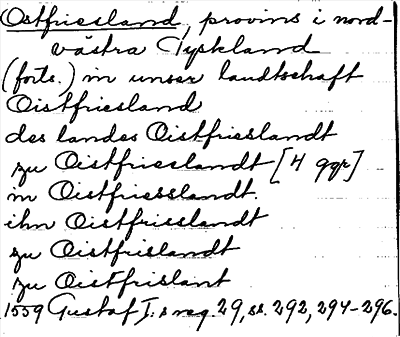 Ostfriesland, provins i nord-
västra Tyskland
(forts.) in unser landtschaft
Oistfriesland
des landes Oistfrieslandt
zu Oistfrieslandt [4 ggr]
in Oistfriesslandt.
ihn Oistfrisslandt
zu Oistfrislandt
zu Oistfrislant
1559 Gustaf I:s reg. 29, ss. 292, 294-296.